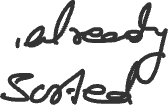 .already
sorted